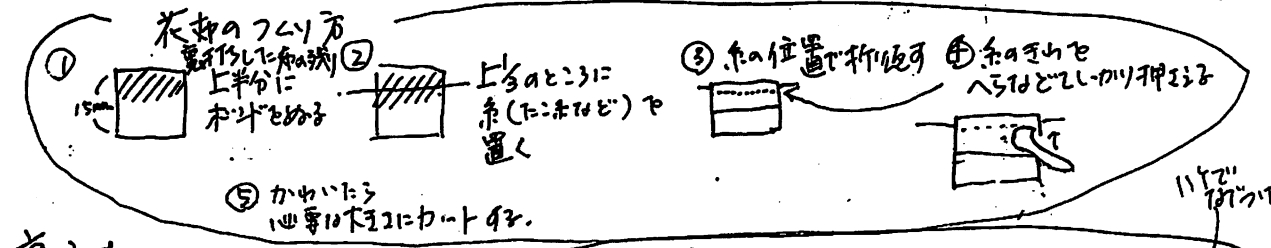 花布のつくり方
①
裏打ちした布の残り
上半分に
ボンドをぬる
15mm
②
上1/3のところに
糸(たこ糸など)を
置く
③ 糸の位置で折返す
④ 糸のきわを
へらなどでしっかり押さえる
⑤ かわいたら
必要な大きさにカットする.
ハケで
なでつけ